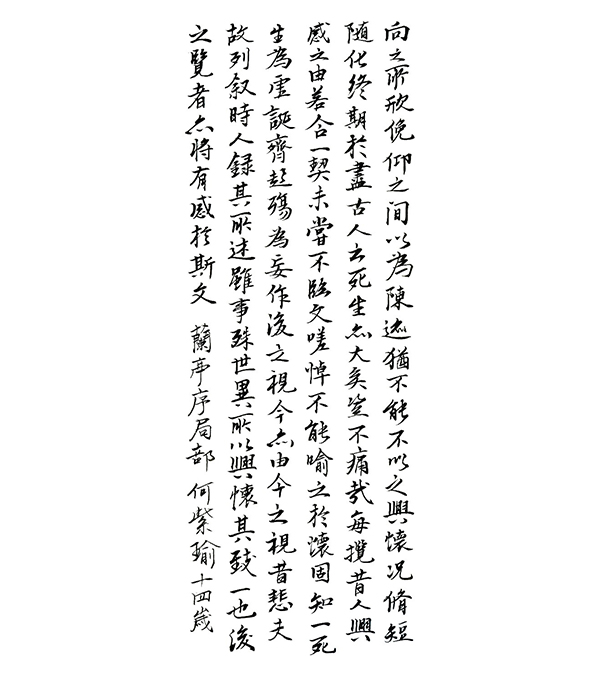 向之所欣俛仰之间以為陳迹猶不能不以之興懷况脩短
随化終期於盡古人云死生亦大矣豈不痛哉每攬昔人興
感之由若合一契未嘗不臨文嗟悼不能喻之於懷固知一死
生為虛誕齊彭殤為妄作後之視今亦由今之視昔悲夫
故列叙時人録其所述雖事殊世異所以興懷其致一也後
之覽者亦將有感於斯文 蘭亭序局部 何紫瑜十四歲